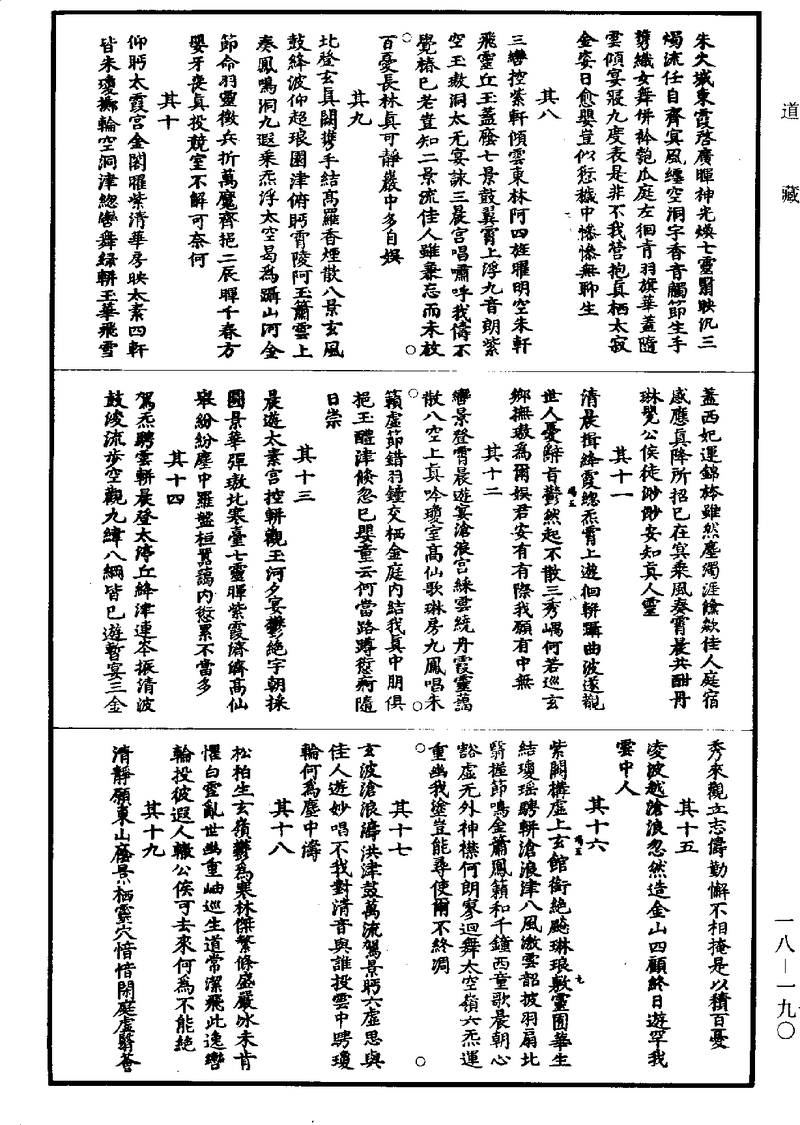 道藏
朱火堿東霞啓廣暉神光煥七靈翳映汎三
燭流任自齊冥風纏空洞宇香音觸節生手
攜織女舞併衿匏瓜庭左徊青羽旗華蓋隨
雲傾宴寢九度表是非不我營抱真栖太寂
金姿日愈嬰豈似愆穢中慘慘無聊生
其八
三巒控紫軒傾雲東林阿四旌曜明空朱軒
飛靈丘玉蓋廕七景鼓翼霄上浮九音朗紫
空玉璈洞太无宴詠三晨宮唱嘯呼我儔不
覺椿已老豈知二景流佳人雖兼忘而未放
百憂長林真可靜巖中多自娛
其九
北登玄真闕携手結高羅香煙散八景玄風
鼓絳波仰超琅園津俯眄霄陵阿玉簫雲上
奏鳳鳴洞九遐乘炁浮太空曷為躡山河金
節命羽靈徵兵折萬魔齊挹二辰暉千春方
嬰牙喪真投競室不解可奈何
其十
仰眄太霞宮金閣曜紫清華房映太素四軒
皆朱瓊擲輪空洞津總轡舞綠軿玉華飛雪
蓋西妃運錦旍雖然塵濁涯飡欻佳人庭宿
感應真降所招已在冥乘風奏霄晨共酣丹
琳罌公侯徒眇眇安知真人靈
其十一
清晨揖絳霞總炁霄上遊徊軿躡曲波遂覩
世人憂辭旨鬱然起不散三秀嵎何若巡玄
鄉撫璈為爾娛君安有有際我願有中無
其十二
巒景登霄晨遊宴滄浪宮綵雲統丹霞靈藹
散八空上真吟瓊室高仙歌琳房九鳳唱朱
籟虛節錯羽鐘交栖金庭內結我真中朋俱
挹玉醴津倏忽已嬰童云何當路蹲愆痾隨
日崇
其十三
晨遊太素宮控軿觀玉河夕宴鬱絶宇朝採
圓景華彈璈北寒臺七靈暉紫霞濟濟高仙
舉紛紛塵中羅盤桓囂藹內愆累不當多
其十四
駕炁騁雲軿晨登太渟丘絳津連岑振清波
鼓濬流步空觀九緯八綱皆已遊暫宴三金
秀來觀立志儔勤懈不相掩是以積百憂
其十五
凌波越滄浪忽然造金山四顧終日遊罕我
雲中人
其十六
紫闕構虛上玄館衝絶飇琳琅敷靈囿華生
結瓊瑶騁軿滄浪津八風激雲韶披羽扇北
翳握節鳴金簫鳳籟和千鐘西童歌晨朝心
豁虛无外神襟何朗寥迴舞太空嶺六炁運
重幽我塗豈能尋使爾不終凋
其十七
玄波滄浪濤洪津鼓萬流駕景眄六虛思與
佳人遊妙唱不我對清音與誰投雲中騁瓊
輪何為塵中濤
其十八
松柏生玄嶺鬱為寒林傑繁條盛嚴冰未肯
懼白雪亂世幽重岫巡生道常潔飛此逸轡
輪投彼遐人轍公侯可去來何為不能絶
其十九
清靜願東山廕景栖靈穴愔愔閑庭虛翳薈
一八—一九〇